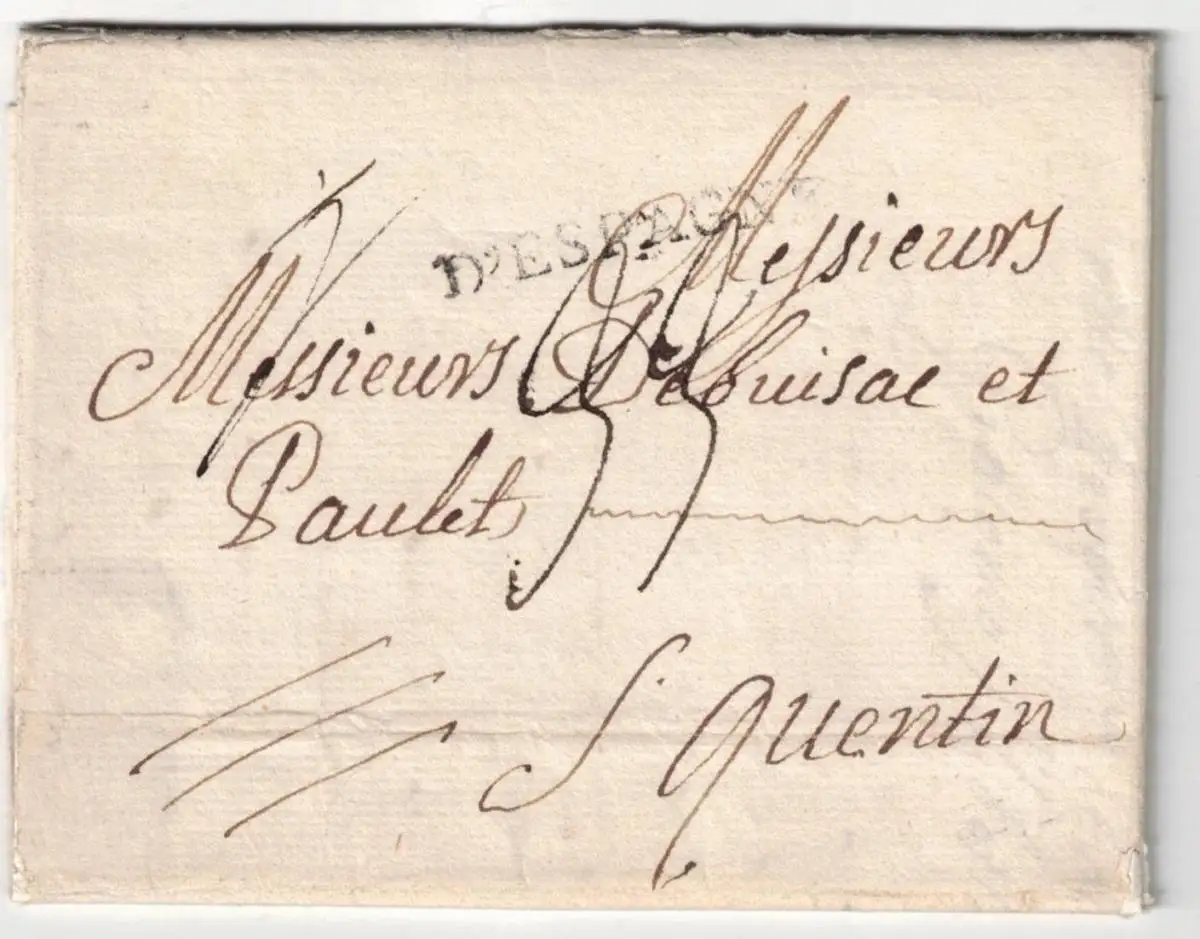 D'ESPAGNE
Messieurs
Messieurs Debuisac et
Paulet
S. quentin